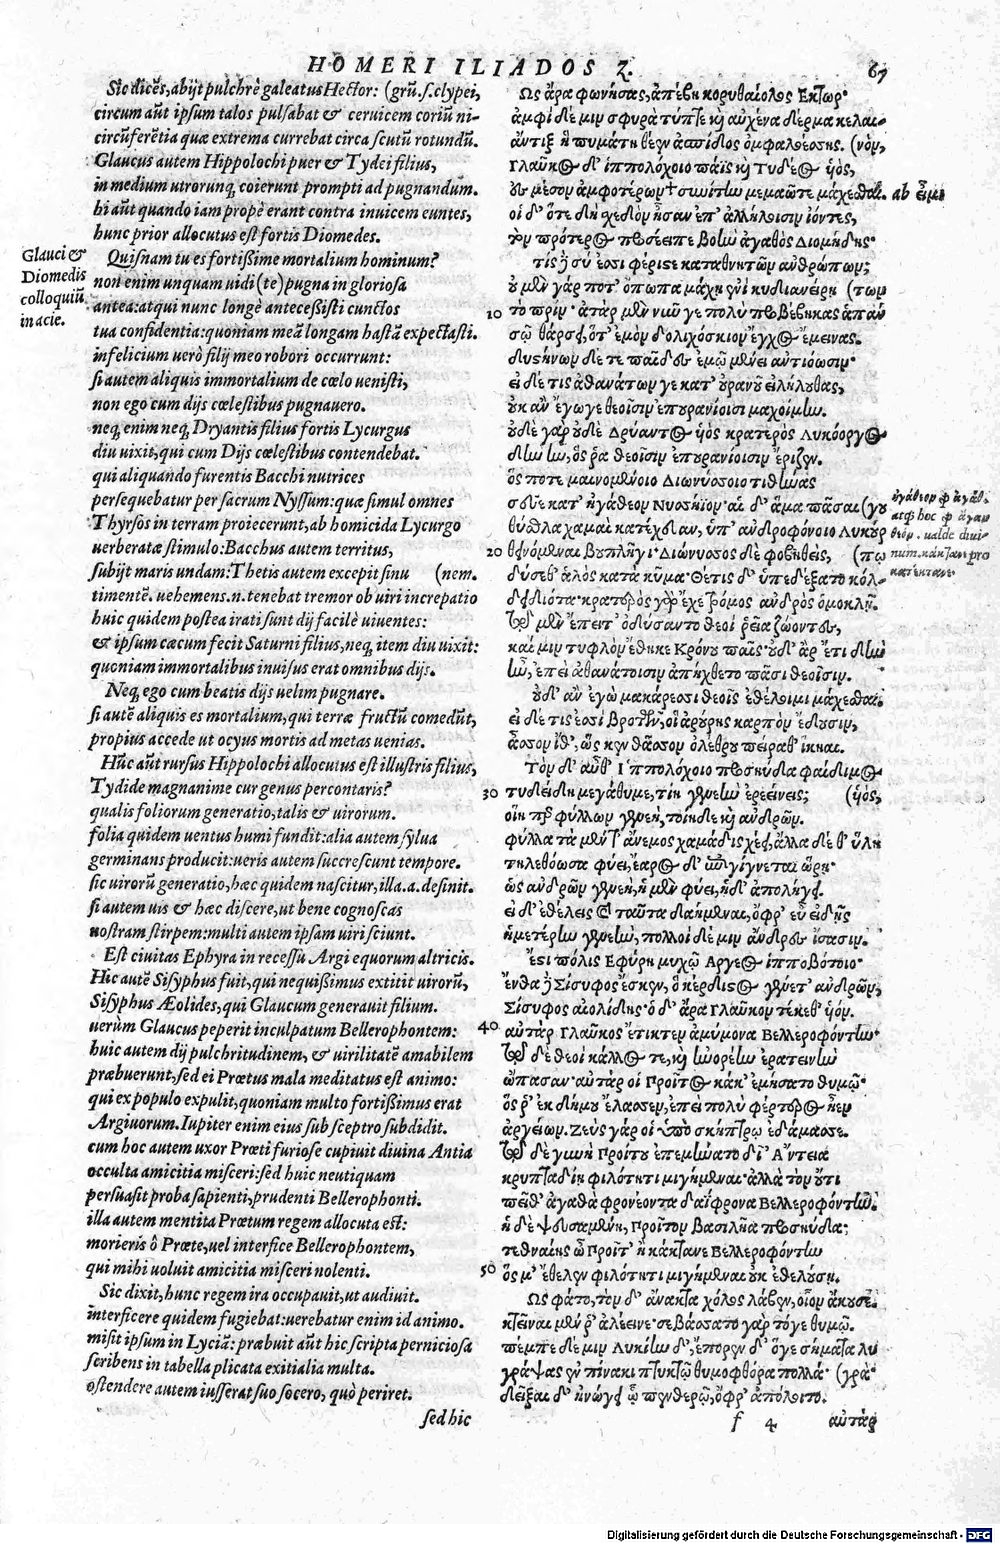 HOMERI ILIADOS Z.
67
Sic dicẽs, abijt pulchrè galeatus Hector: (grũ.ſ.clypei,
circum aũt ipſum talos pulſabat & ceruicem coriũ ni-
circũferẽtia quæ extrema currebat circa ſcutũ rotundũ.
Glaucus autem Hippolochi puer & Tydei filius,
in medium utrorunq; coierunt prompti ad pugnandum.
hi aũt quando iam propè erant contra inuicem euntes,
hunc prior allocutus eſt fortis Diomedes.
Quiſnam tu es fortiſsime mortalium hominum?
non enim unquam uidi (te) pugna in glorioſa
antea: atqui nunc longè anteceſsiſti cunctos
tua confidentia: quoniam meã longam haſtã expectaſti.
infelicium uerò filij meo robori occurrunt:
ſi autem aliquis immortalium de cœlo ueniſti,
non ego cum dijs cœleſtibus pugnauero.
neq; enim neq; Dryantis filius fortis Lycurgus
diu uixit, qui cum Dijs cœleſtibus contendebat.
qui aliquando furentis Bacchi nutrices
perſequebatur per ſacrum Nyſſum: quæ ſimul omnes
Thyrſos in terram proiecerunt, ab homicida Lycurgo
uerberatæ ſtimulo: Bacchus autem territus,
ſubijt maris undam: Thetis autem excepit ſinu (nem.
timentẽ. uehemens.n.tenebat tremor ob uiri increpatio
huic quidem poſtea irati ſunt dij facilè uiuentes:
& ipſum cæcum fecit Saturni filius, neq; item diu uixit:
quoniam immortalibus inuiſus erat omnibus dijs.
Neq; ego cum beatis dijs uelim pugnare.
ſi autẽ aliquis es mortalium, qui terræ fructũ comedũt,
propius accede ut ocyus mortis ad metas uenias.
Hũc aũt rurſus Hippolochi allocutus eſt illuſtris filius,
Tydide magnanime cur genus percontaris?
qualis foliorum generatio, talis & uirorum.
folia quidem uentus humi fundit: alia autem ſylua
germinans producit: ueris autem ſuccreſcunt tempore.
ſic uirorũ generatio, hæc quidem naſcitur, illa.a.deſinit.
ſi autem uis & hæc diſcere, ut bene cognoſcas
noſtram ſtirpem: multi autem ipſam uiri ſciunt.
Eſt ciuitas Ephyra in receſſu Argi equorum altricis.
Hic autẽ Siſyphus fuit, qui nequiſsimus extitit uirorũ,
Siſyphus Æolides, qui Glaucum generauit filium.
uerùm Glaucus peperit inculpatum Bellerophontem:
huic autem dij pulchritudinem, & uirilitatẽ amabilem
præbuerunt, ſed ei Prœtus mala meditatus eſt animo:
qui ex populo expulit, quoniam multo fortiſsimus erat
Argiuorum. Iupiter enim eius ſub ſceptro ſubdidit.
cum hoc autem uxor Prœti furioſe cupiuit diuina Antia
occulta amicitia miſceri: ſed huic neutiquam
perſuaſit proba ſapienti, prudenti Bellerophonti.
illa autem mentita Prœtum regem allocuta eſt:
morieris ô Prœte, uel interfice Bellerophontem,
qui mihi uoluit amicitia miſceri nolenti.
Sic dixit, hunc regem ira occupauit, ut audiuit.
interficere quidem fugiebat: uerebatur enim id animo.
miſit ipſum in Lyciã: præbuit aũt hic ſcripta pernicioſa
ſcribens in tabella plicata exitialia multa.
oſtendere autem iuſſerat ſuo ſocero, quò periret.
ſed hic
Glauci &
Diomedis
colloquiũ
in acie.
Ὣς ἄρα φωνήσας, ἀπέβη κορυθαίολος Ἕκτωρ·
ἀμφὶ δέ μιν σφυρὰ τύπτε καὶ αὐχένα δέρμα κελαι-
ἄντυξ ἣ πυμάτη θέεν ἀσπίδος ὀμφαλοέσσης. (νὸν,
Γλαῦκος δ' ἱππολόχοιο πάϊς καὶ Τυδέος ὑός,
ἐς μέσον ἀμφοτέρων † συνίτην μεμαῶτε μάχεσθαι.
οἱ δ' ὅτε δὴ σχεδὸν ἦσαν ἐπ' ἀλλήλοισιν ἰόντες,
τὸν πρότερος προσέειπε βοὴν ἀγαθὸς Διομήδης·
τίς δὲ σύ ἐσσι φέριστε καταθνητῶν ἀνθρώπων;
οὐ μὲν γάρ ποτ' ὄπωπα μάχῃ ἔνι κυδιανείρῃ (των
10 τὸ πρίν· ἀτὰρ μὲν νῦν γε πολὺ προβέβηκας ἁπάν
σῷ θάρσει, ὅτ' ἐμὸν δολιχόσκιον ἔγχος ἔμεινας.
δυστήνων δέ τε παῖδες ἐμῷ μένει ἀντιόωσιν·
εἰ δέ τις ἀθανάτων γε κατ' οὐρανοῦ εἰλήλουθας,
οὐκ ἂν ἔγωγε θεοῖσιν ἐπουρανίοισι μαχοίμην.
οὐδὲ γὰρ οὐδὲ Δρύαντος ὑὸς κρατερὸς Λυκόοργος
δὴν ἦν, ὅς ῥα θεοῖσιν ἐπουρανίοισιν ἔριζεν.
ὅς ποτε μαινομένοιο Διωνύσοιο τιθήνας
σεῦε κατ' ἠγάθεον Νυσήϊον· αἱ δ' ἅμα πᾶσαι (γου
θύσθλα χαμαὶ κατέχευαν, ὑπ' ἀνδροφόνοιο Λυκούρ
20 θεινόμεναι βουπλῆγι· Διώνυσος δὲ φοβηθείς, (πῳ
δύσεθ' ἁλὸς κατὰ κῦμα· Θέτις δ' ὑπεδέξατο κόλ-
δειδιότα· κρατερὸς γὰρ ἔχε τρόμος ἀνδρὸς ὁμοκλῇ.
τῷ μὲν ἔπειτ' ὀδύσαντο θεοὶ ῥεῖα ζώοντες,
καί μιν τυφλὸν ἔθηκε Κρόνου πάϊς· οὐδ' ἄρ' ἔτι δὴν
ἦν, ἐπεὶ ἀθανάτοισιν ἀπήχθετο πᾶσι θεοῖσιν.
οὐδ' ἂν ἐγὼ μακάρεσσι θεοῖς ἐθέλοιμι μάχεσθαι.
εἰ δέ τις ἐσσὶ βροτῶν, οἳ ἀρούρης καρπὸν ἔδουσιν,
ἆσσον ἴθ', ὥς κεν θᾶσσον ὀλέθρου πείραθ' ἵκηαι.
Τὸν δ' αὖθ' Ἱππολόχοιο προσηύδα φαίδιμος
30 τυδείδη μεγάθυμε, τίη γενεὴν ἐρεείνεις; (ὑός,
οἵη περ φύλλων γενεὴ, τοιήδε καὶ ἀνδρῶν.
φύλλα τὰ μέν τ' ἄνεμος χαμάδις χέει, ἄλλα δέ θ' ὕλη
τηλεθόωσα φύει, ἔαρος δ' ἐπιγίγνεται ὥρη·
ὣς ἀνδρῶν γενεὴ, ἡ μὲν φύει, ἡ δ' ἀπολήγει.
εἰ δ' ἐθέλεις καὶ ταῦτα δαήμεναι, ὄφρ' εὖ εἰδῇς
ἡμετέρην γενεὴν, πολλοὶ δέ μιν ἄνδρες ἴσασιν.
Ἔστι πόλις Ἐφύρη μυχῷ Ἄργεος ἱπποβότοιο·
ἔνθα δὲ Σίσυφος ἔσκεν, ὃ κέρδιστος γένετ' ἀνδρῶν,
Σίσυφος αἰολίδης· ὁ δ' ἄρα Γλαῦκον τέκεθ' ὑόν.
40 αὐτὰρ Γλαῦκος ἔτικτεν ἀμύμονα Βελλεροφόντην·
τῷ δὲ θεοὶ κάλλος τε, καὶ ἠνορέην ἐρατεινὴν
ὤπασαν· αὐτάρ οἱ Προῖτος κάκ' ἐμήσατο θυμῷ·
ὅς ῥ' ἐκ δήμου ἔλασσεν, ἐπεὶ πολὺ φέρτερος ἦεν
ἀργείων. Ζεὺς γάρ οἱ ὑπὸ σκήπτρῳ ἐδάμασσε.
τῷ δὲ γυνὴ Προίτου ἐπεμήνατο δῖ' Ἄντεια
κρυπταδίῃ φιλότητι μιγήμεναι· ἀλλὰ τὸν οὔτι
πεῖθ' ἀγαθὰ φρονέοντα δαΐφρονα Βελλεροφόντην.
ἡ δὲ ψευσαμένη, Προῖτον βασιλῆα προσηύδα;
τεθναίης ὦ Προῖτ' ἢ κάκτανε Βελλεροφόντην
50 ὅς μ' ἔθελεν φιλότητι μιγήμεναι οὐκ ἐθελούσῃ.
Ὣς φάτο, τὸν δ' ἄνακτα χόλος λάβεν, οἷον ἄκουσε.
κτεῖναι μέν ῥ' ἀλέεινε· σεβάσσατο γὰρ τόγε θυμῷ.
πέμπε δέ μιν Λυκίην δ', ἔπορεν δ' ὅγε σήματα λυ
γράψας ἐν πίνακι πτυκτῷ θυμοφθόρα πολλά· (γρά·
δεῖξαι δ' ἠνώγει ᾧ πενθερῷ, ὄφρ' ἀπόλοιτο.
f 4
αὐτὰρ
ab εἶμι
ualde diui-
num. κάκτανε pro
κατέκτανε·
Digitalisierung gefördert durch die Deutsche Forschungsgemeinschaft - DFG